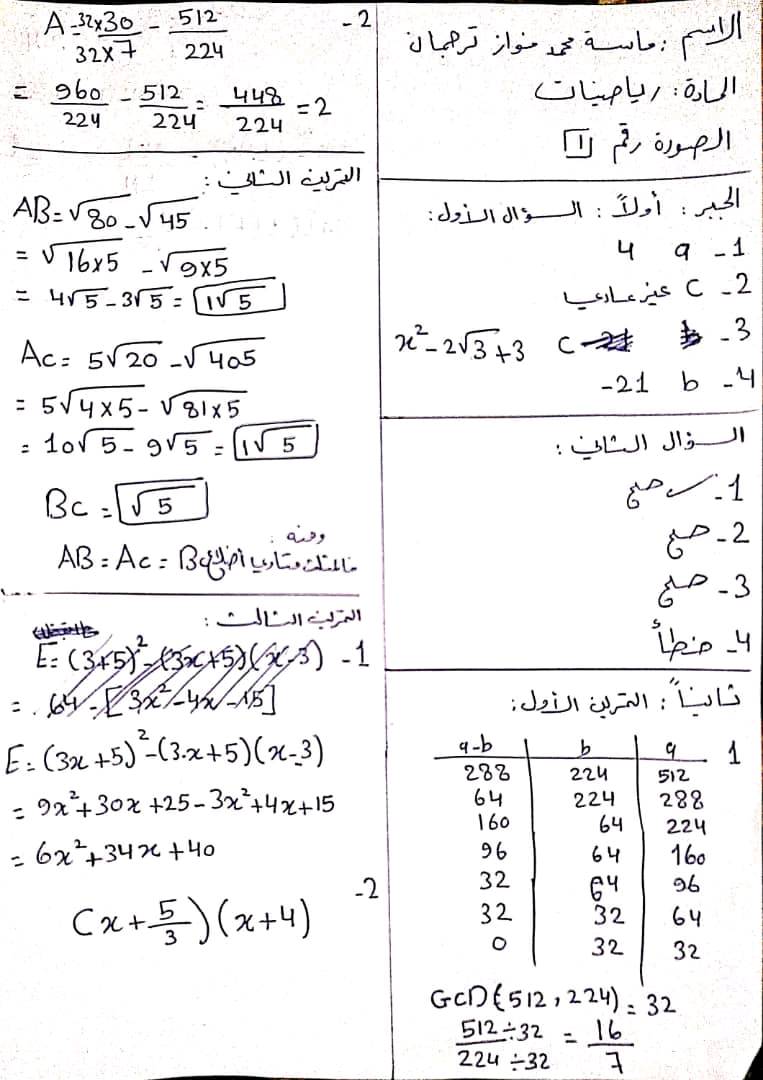 الاسم : ماسة محمد منواز ترجمان
المادة : رياضيات
الصورة رقم 1
الجبر : أولاً : السؤال الأول :
1- a 4
2- C غير عادي
3- C x²-2√3+3
4- b -21
السؤال الثاني :
1- صح
2- صح
3- صح
4- خطأ
ثانياً : التمرين الأول :
1
a b a-b
512 224 288
288 224 64
224 64 160
160 64 96
96 64 32
64 32 32
32 32 0
GCD(512,224)=32
512÷32/224÷32 = 16/7
2-
A = 32×30/32×7 - 512/224
= 960/224 - 512/224 = 448/224 = 2
التمرين الثاني :
AB=√80-√45
= √16×5 -√9×5
= 4√5-3√5= 1√5
AC= 5√20-√405
= 5√4×5-√81×5
= 10√5-9√5= 1√5
BC = √5
ومنه :
AB=AC=BC فالمثلث متساوي أضلاع
التمرين الثالث :
1- E=(3+5)²-(3x+5)(x-3)
= 64-[3x²-4x-15]
E=(3x+5)²-(3x+5)(x-3)
= 9x²+30x+25-3x²+4x+15
= 6x²+34x+40
2-
(x+5/3)(x+4)